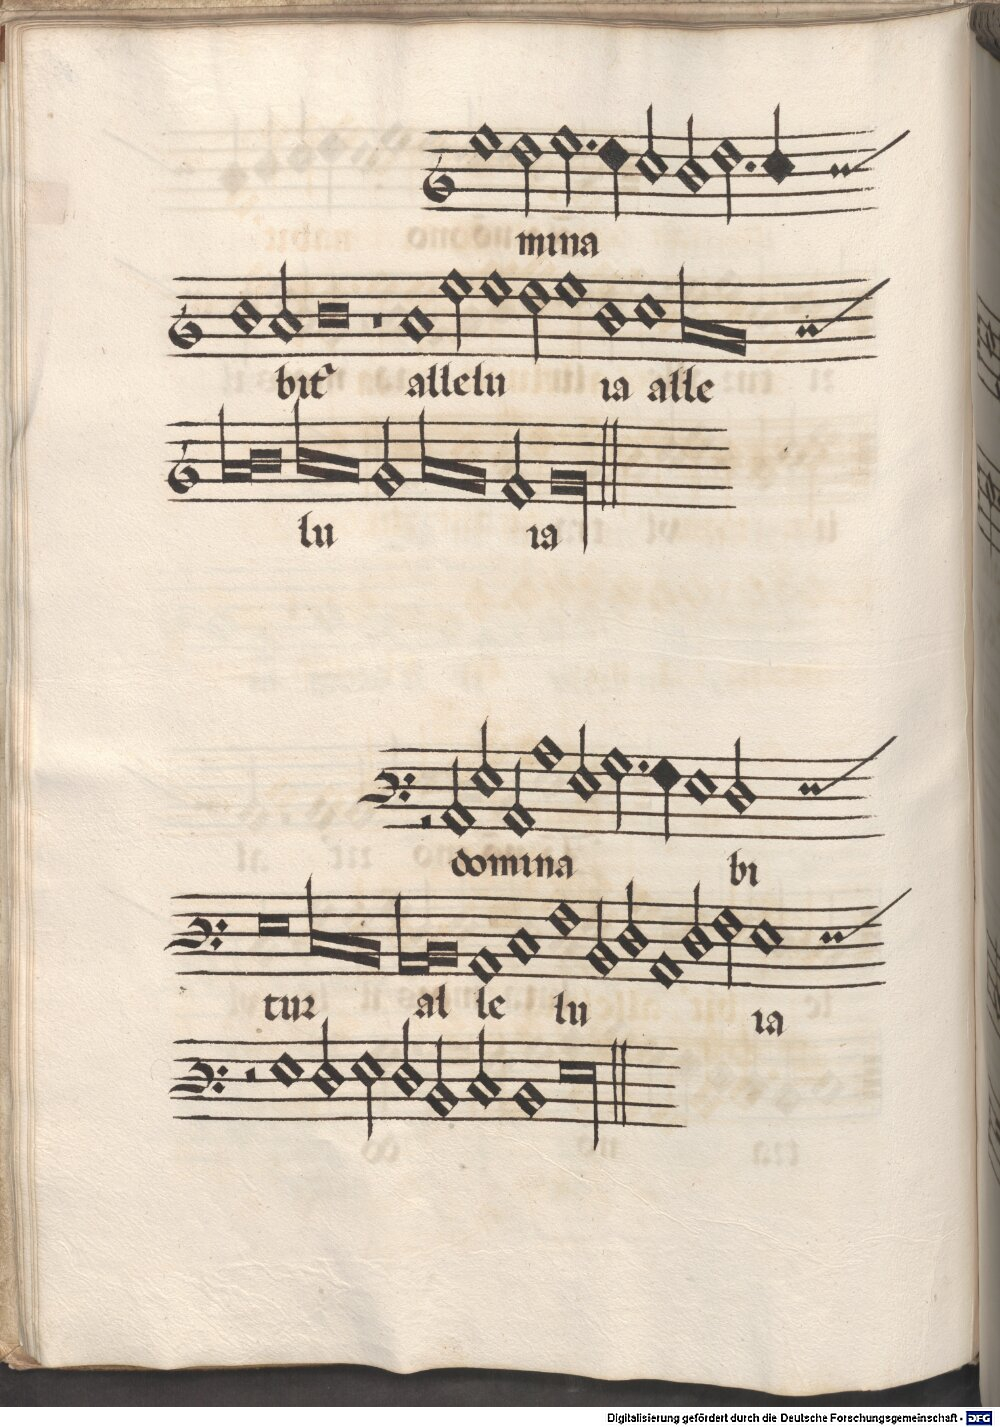 mina
bit᷑ allelu ia alle
lu ia
domina bi
tur al le lu ia
Digitalisierung gefördert durch die Deutsche Forschungsgemeinschaft - DFG